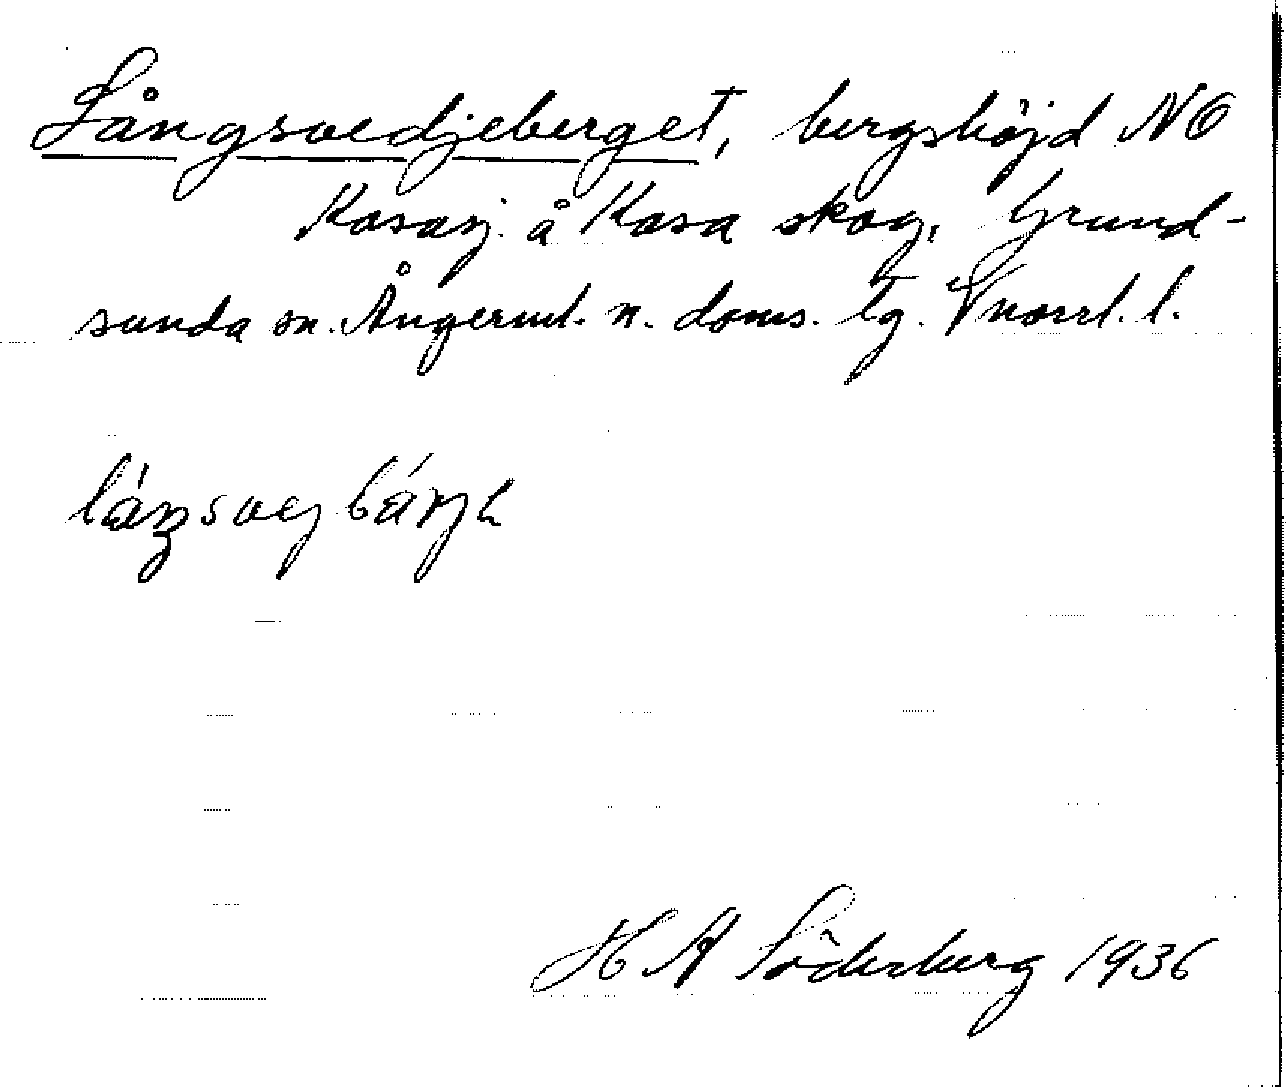 Långsvedjeberget, bergshöjd NO
Kasasj. å Kasa skog, Grund-
sunda sn. Ångerml. n. doms. tg. Vnorrl. l.
H A Söderberg 1936